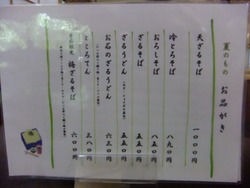 夏のもの お品がき
天ざるそば 一〇〇〇円
冷とろそば 八九〇円
おろしそば 八五〇円
ざるそば 五五〇円
ざるうどん 五五〇円
お石のざるうどん 六三〇円
ところてん 三八〇円
梅ざるそば 六〇〇円